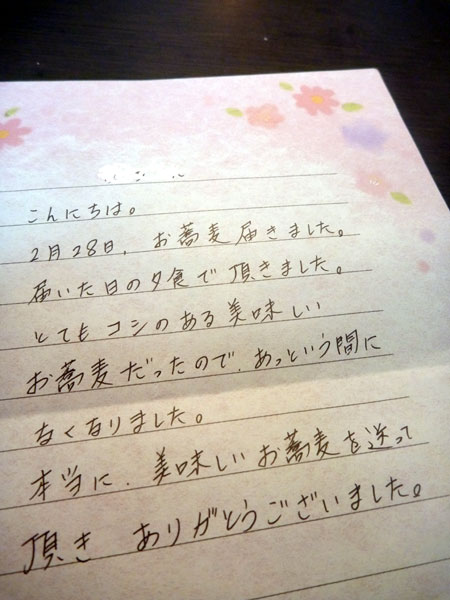 こんにちは。
2月28日、お蕎麦届きました。
届いた日の夕食で頂きました。
とてもコシのある美味しい
お蕎麦だったので、あっという間に
なくなりました。
本当に、美味しいお蕎麦を送って
頂き ありがとうございました。